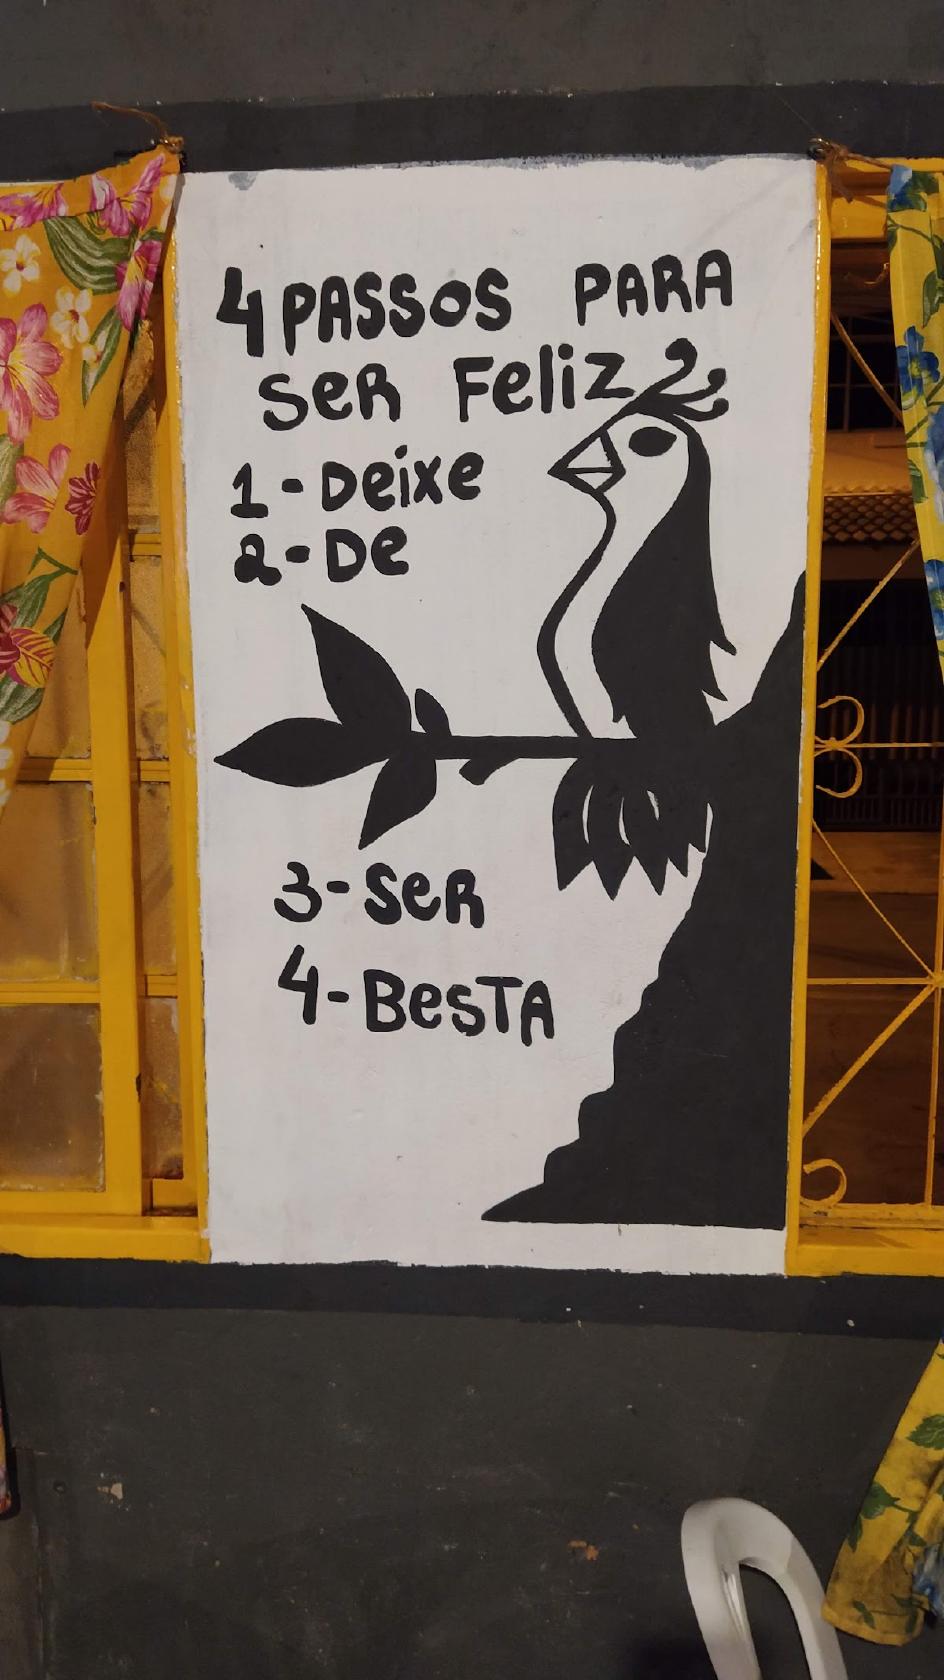 4 PASSOS PARA
SER FeliZ
1-Deixe
2-De
3-SeR
4-BesTA